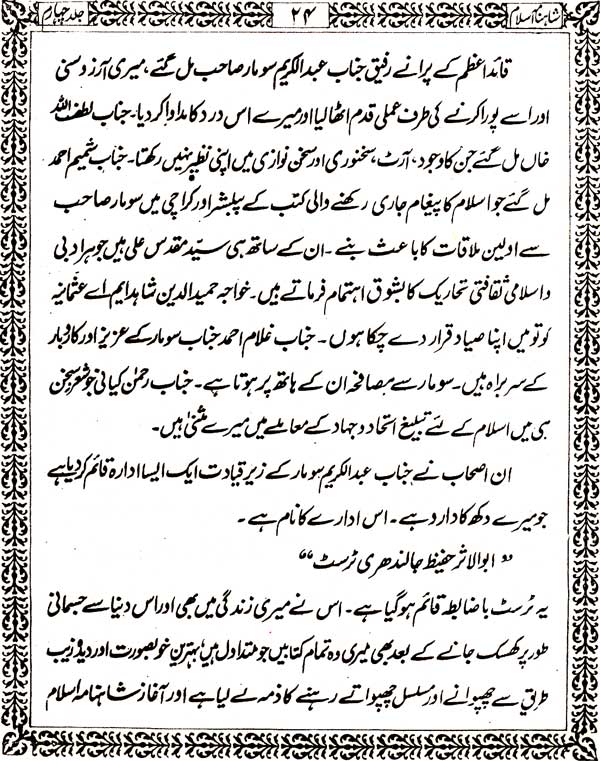 شاہنامۂ اسلام ۲۴ جلد چہارم
قائد اعظم کے پرانے رفیق جناب عبدالکریم سومار صاحب مل گئے، میری آرزو سنی
اور اسے پورا کرنے کی طرف عملی قدم اٹھا لیا اور میرے اس درد کا مداوا کر دیا۔ جناب لطف اللہ
خاں مل گئے جن کا وجود، آرٹ، سخنوری اور سخن نوازی میں اپنی نظیر نہیں رکھتا۔ جناب شمیم احمد
مل گئے جو اسلام کا پیغام جاری رکھنے والی کتب کے پبلشر اور کراچی میں سومار صاحب
سے اولین ملاقات کا باعث بنے۔ ان کے ساتھ ہی سیّد مقدس علی ہیں جو ہر ادبی
و اسلامی ثقافتی تحاریک کا بشوق اہتمام فرماتے ہیں۔ خواجہ حمید الدین شاہد ایم اے عثمانیہ
کو تو میں اپنا صیاد قرار دے چکا ہوں۔ جناب غلام احمد جناب سومار کے عزیز اور کاروبار
کے سربراہ ہیں۔ سومار سے مصافحہ ان کے ہاتھ پر ہوتا ہے۔ جناب رحمٰن کیانی جو شعر و سخن
ہی میں اسلام کے لئے تبلیغ اتحاد و جہاد کے معاملے میں میرے مثنیٰ ہیں۔
ان اصحاب نے جناب عبدالکریم سومار کے زیر قیادت ایک ایسا ادارہ قائم کر دیا ہے
جو میرے دکھ کا دارو ہے۔ اس ادارے کا نام ہے۔
” ابوالاثر حفیظ جالندھری ٹرسٹ “
یہ ٹرسٹ باضابطہ قائم ہو گیا ہے۔ اس نے میری زندگی میں بھی اور اس دنیا سے جسمانی
طور پر کھسک جانے کے بعد بھی میری وہ تمام کتابیں جو متداول ہیں بہترین خوبصورت اور دیدہ زیب
طریق سے چھپوانے اور مسلسل چھپواتے رہنے کا ذمہ لے لیا ہے اور آغاز شاہنامہ اسلام